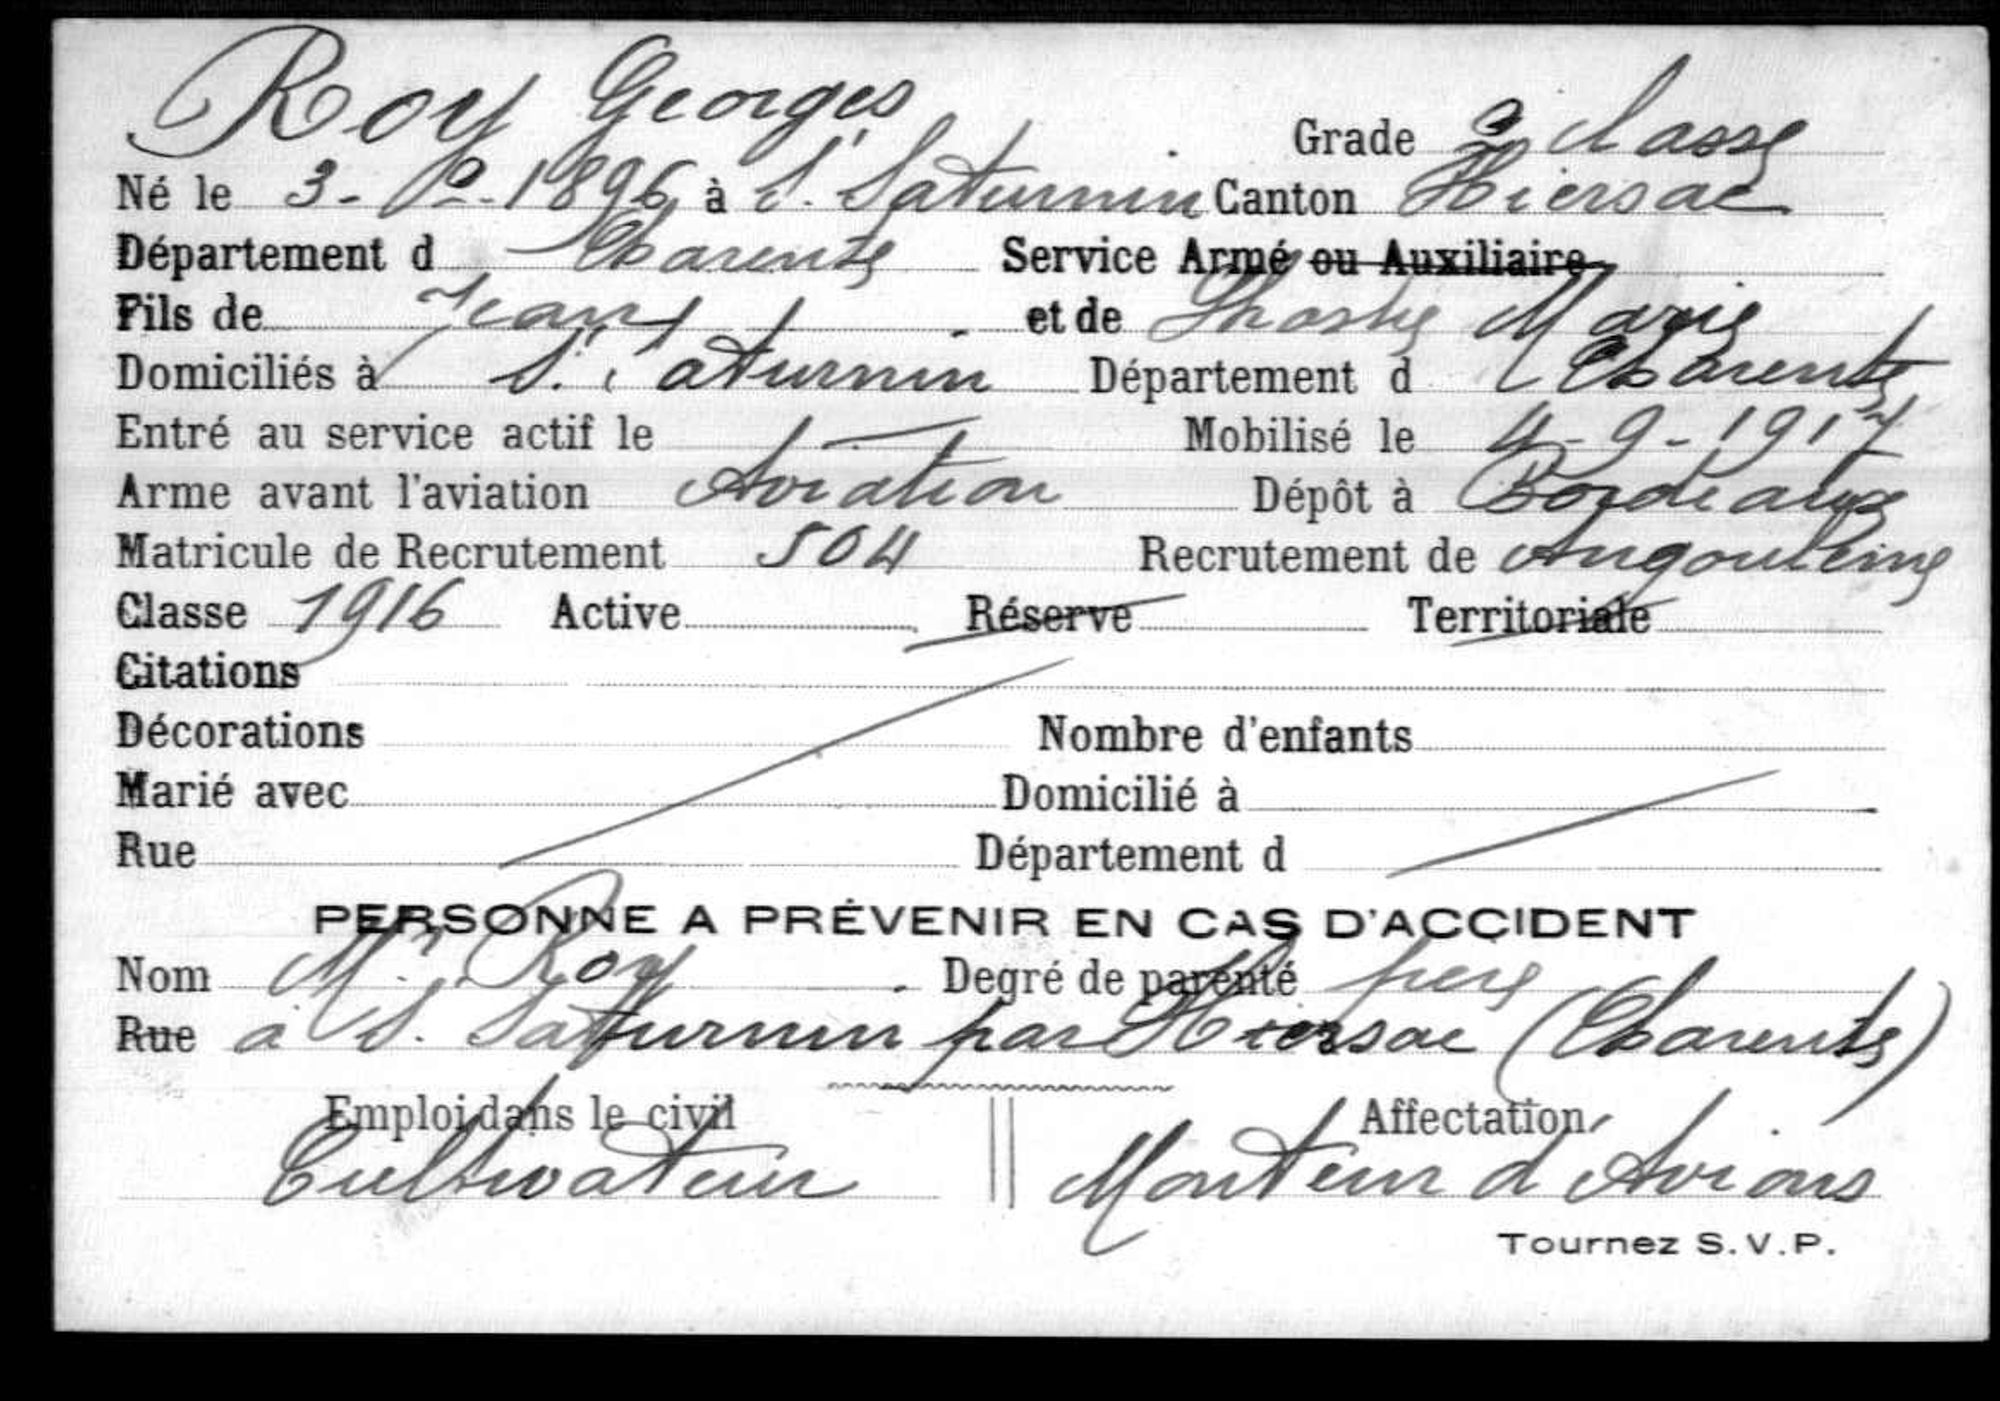 Roy Georges
Grade 2e classe
Né le 3- -1896 à St. Saturnin Canton Hiersac
Département d Charente Service Armé ou Auxiliaire
Fils de Jean et de Marie
Domiciliés à St. Saturnin Département d Charente
Entré au service actif le — Mobilisé le 4-9-1917
Arme avant l'aviation Aviation Dépôt à Bordeaux
Matricule de Recrutement 504 Recrutement de Angouleme
Classe 1916 Active Réserve Territoriale
Citations
Décorations Nombre d'enfants
Marié avec Domicilié à
Rue Département d
PERSONNE A PRÉVENIR EN CAS D'ACCIDENT
Nom Mr Roy Degré de parenté pere
Rue a St. Saturnin par Hiersac (Charente)
Emploi dans le civil Affectation
Cultivateur Monteur d'Avions
Tournez S.V.P.